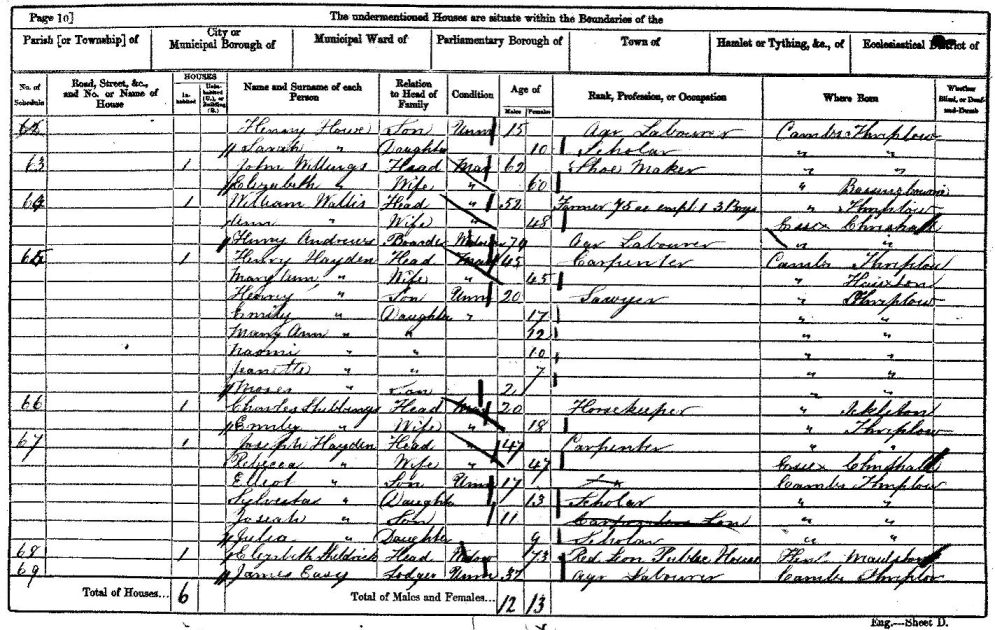 Page 10] The undermentioned Houses are situate within the Boundaries of the
Parish [or Township] of City or Municipal Borough of Municipal Ward of Parliamentary Borough of Town of Hamlet or Tything, &c., of Ecclesiastical District of
No. of Schedule Road, Street, &c., and No. or Name of House HOUSES Inhabited Uninhabited (U.), or Building (B.) Name and Surname of each Person Relation to Head of Family Condition Age of Males Females Rank, Profession, or Occupation Where Born Whether Blind, or Deaf-and-Dumb
62 Henry Howe Son Unm 15 Agr Labourer Cambs Thriplow
Sarah " Daughter 10 Scholar " "
63 1 John Wellings Head Mar 62 Shoe Maker " "
Elizabeth " Wife " 60 "
64 1 William Wallis Head " 52 Farmer 75 ac empl 3 Boys " Thriplow
Ann " Wife " 48 Essex Chrishall
Henry Andrews Boarder 74 Agr Labourer " "
65 1 Henry Hayden Head Mar 45 Carpenter Cambs Thriplow
Mary Ann " Wife " 45 "
Henry " Son Unm 20 Sawyer " Thriplow
Emily " Daughter " 17 " "
Mary Ann " " 12 " "
Naomi " " 10 " "
Jeanette " " 7 " "
Moses " Son 2 "
66 1 Charles Stubbings Head Mar 20 Horsekeeper " Ickleton
Emily " Wife " 18 " Thriplow
67 1 Joseph Hayden Head " 47 Carpenter " "
Rebecca " Wife " 47 Essex Chrishall
Elliot " Son Unm 17 Cambs Thriplow
" Daughter 13 Scholar " "
Josiah " Son 11 Carpenters Son " "
Julia " Daughter 9 Scholar " "
68 1 Elizabeth Sheldrick Head Widow 73 Red Lion Public House
69 James Easy Lodger Unm 37 Agr Labourer Cambs Thriplow
Total of Houses... 6 Total of Males and Females... 12 13
Eng.—Sheet D.